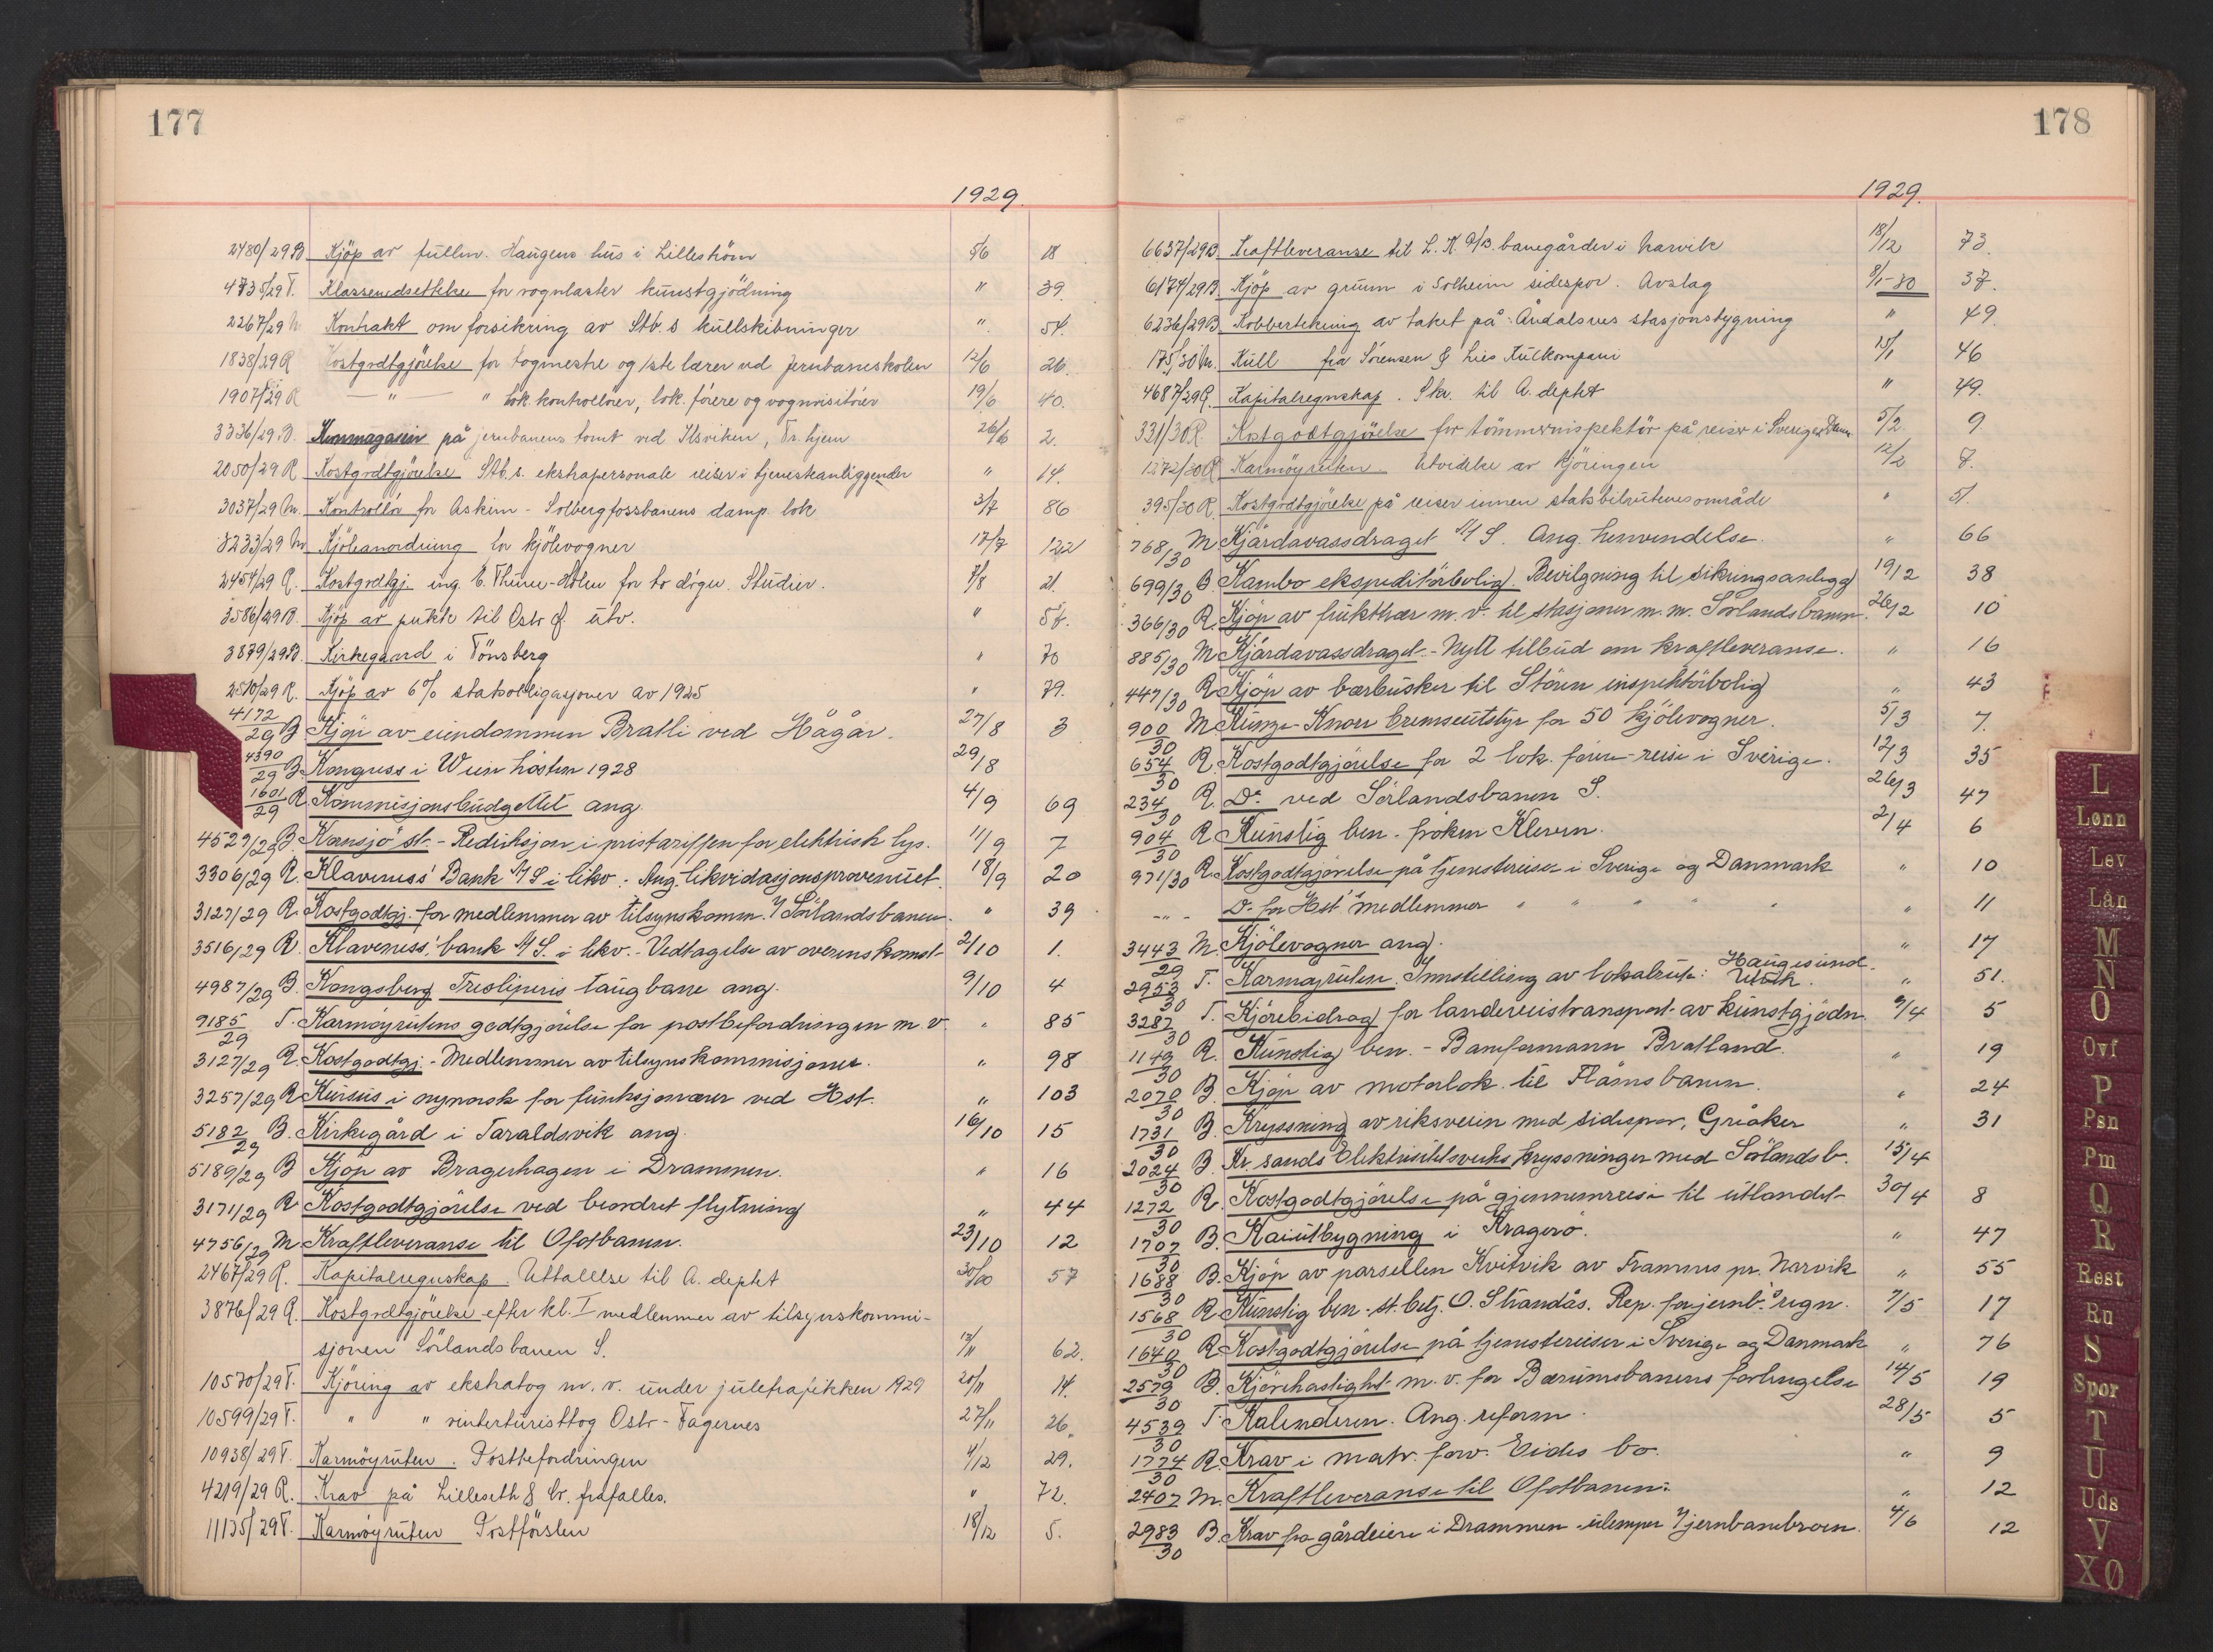 177
1929.
2480/29 B Kjöp av fullm. Haugens hus i Lilleström 5/6 18
4735/29 T. Klassenedsettelse for vognlaster kunstgjödning " 39.
2267/29 M Kontrakt om forsikring av Stb.s kullskibninger " 54.
1838/29 R Kostgodtgjörelse for togmestre og 1ste lærer ved Jernbaneskolen 12/6 26.
1907/29 R — " — " lok.kontrollörer, lok.förere og vognvisitörer 19/6 40.
3336/29 B. Kornmagasin på jernbanens tomt ved Ilsviken, Tr.hjem 26/6 2.
2050/29 R Kostgodtgjörelse Stb.s. ekstrapersonale reiser i tjenesteanliggender " 14.
3037/29 M. Kontrollör for Askim - Solbergfossbanens damp.lok 3/7 86
3233/29 M Kjöleanordning for kjölevogner 17/7 122
2454/29 R. Kostgodtgj. ing. C. Thune-Holm for to dögn. Studier. 7/8 21.
3586/29 B. Kjöp av pukk til Ostb. J. utv. "
3879/29 B. Kirkegaard i Tönsberg " 70
2510/29 R. Kjöp av 6% statsobligasjoner av 1925 " 79.
4172/29 B Kjöp av eiendommen Bratli ved Hågår. 27/8 3
4390/29 B. Kongress i Wien hösten 1928 29/8
1601/29 R Kommisjonsbudgettet ang. 4/9 69
4529/29 B. Kornsjö st. - Reduksjon i pristariffen for elektrisk lys. 11/9 7
3306/29 R. Klaveness' Bank A/S i likv. Ang. likvidasjonsprovenuet. 18/9 20
3127/29 R. Kostgodtgj. for medlemmer av tilsynskomm. v/ Sörlandsbanen. " 39
3516/29 R. Klaveness' bank A/S. i likv. - Vedtagelse av overenskomst 2/10 1.
4987/29 B. Kongsberg Tresliperis taugbane ang. 9/10 4
9185/29 T. Karmöyrutens godtgjörelse for postbefordringen m.v. " 85
3127/29 R. Kostgodtgj. - Medlemmer av tilsynskommisjoner. " 98
3257/29 R Kursus i nynorsk for funksjonærer ved Hst. " 103
5182/29 B. Kirkegård i Taraldsvik ang. 16/10 15
5189/29 B Kjöp av Bragerhagen i Drammen. " 16
3171/29 R Kostgodtgjörelse ved beordret flytning " 44
4756/29 M Kraftleveranse til Ofotbanen. 23/10 12
2467/29 R. Kapitalregnskap. Uttalelse til A. deptet 30/10 57
3876/29 R. Kostgodtgjörelse efter kl. I medlemmer av tilsynskommi-
sjonen Sörlandsbanen S. 13/11 62.
10570/29 T. Kjöring av ekstratog m.v. under juletrafikken 1929 20/11 14.
10599/29 T. " " vinterturisttog Ostb. - Fagernes 27/11 26.
10938/29 T. Karmöyruten. Postbefordringen 4/12 29.
4219/29 R. Krav på Lilleseth & br. frafalles. " 72.
11135/29 T. Karmöyruten Postförslen 18/12 5.
178
1929.
6637/29 B. Kraftleveranse til L.K.A/B. banegården i Narvik 18/12 73.
6174/29 B Kjöp av grunn i Solheim sidespor. Avslag 8/1-30 37.
6236/29 B Kobbertekning av taket på Åndalsnes stasjonsbygning " 49.
175/30 M. Kull fra Sörensen & Lies Kulkompani 15/1 46
4687/29 R. Kapitalregnskap. Skr. til A. deptet " 49.
331/30 R. Kostgodtgjörelse for tömmerinspektör på reiser i Sverige & Danm. 5/2 9
1272/30 R Karmöyruten Utvidelse av kjöringen 12/2 7.
395/30 R. Kostgodtgjörelse på reiser innen statsbilrutenes område " 51.
768/30 M Kjårdavassdraget A/S. Ang. henvendelse. " 66
699/30 B Kambo ekspeditörbolig. Bevilgning til sikringsanlegg 19/2 38
366/30 R. Kjöp av frukttrær m.v. til stasjoner m.m. Sörlandsbanen. 26/2 10
885/30 M Kjårdavassdraget. - Nytt tilbud om kraftleveranse. " 16
447/30 R Kjöp av bærbusker til Stören inspektörbolig " 43
900/30 M Kunze-Knorr bremseutstyr for 50 kjölevogner. 5/3 7.
654/30 R. Kostgodtgjörelse for 2 lok.förere-reise i Sverige. 12/3 35
234/30 R. Do. ved Sörlandsbanen S. 26/3 47
904/30 R Kunstig ben - fröken Kleven. 2/4 6
971/30 R. Kostgodtgjörelse på tjenestereiser i Sverige og Danmark " 10
- " - Do. for Hst medlemmer " " " " " 11
3443/29 M. Kjölevogner ang. " 17
2953/30 T. Karmöyruten. Innstilling av lokalrute: Haugesund-
Utvik. " 51.
3287/30 T. Kjörebidrag for landeveistransport av kunstgjödn. 9/4 5
1149/30 R. Kunstig ben. - Baneformann Bratland. " 19
2070/30 B. Kjöp av motorlok. til Flåmsbanen. " 24
1731/30 B. Kryssning av riksveien med sidespor, Gråker " 31
2024/30 B. Kr.sands Elektrisitetsverks kryssninger med Sörlandsb. 15/4
1272/30 R. Kostgodtgjörelse på gjennemreise til utlandet 30/4 8
1707/30 B. Kaiutbygning i Kragerö. " 47
1688/30 B. Kjöp av parsellen Kvitvik av Framnes pr. Narvik " 55
1568/30 R Kunstig ben - st.betj. O. Strandås. Rep. for jernb. regn. 7/5 17
1640/30 R Kostgodtgjörelse på tjenestereiser i Sverige og Danmark " 76
2579/30 B. Kjörehastighet m.v. for Bærumsbanens forlengelse 14/5 19
4539/30 T. Kalenderen. Ang. reform. 28/5 5
1774/30 R. Krav i matr. forv. Eides bo. " 9
2407/30 M. Kraftleveranse til Ofotbanen. " 12
2983/30 B. Krav fra gårdeiere i Drammen ulemper v/ jernbanebroen. 4/6 12
L
Lønn
Lev
Lån
M
N
O
Ovf
P
Psn
Pm
Q
R
Rest
Ru
S
Spor
T
U
Uds
V
XØ